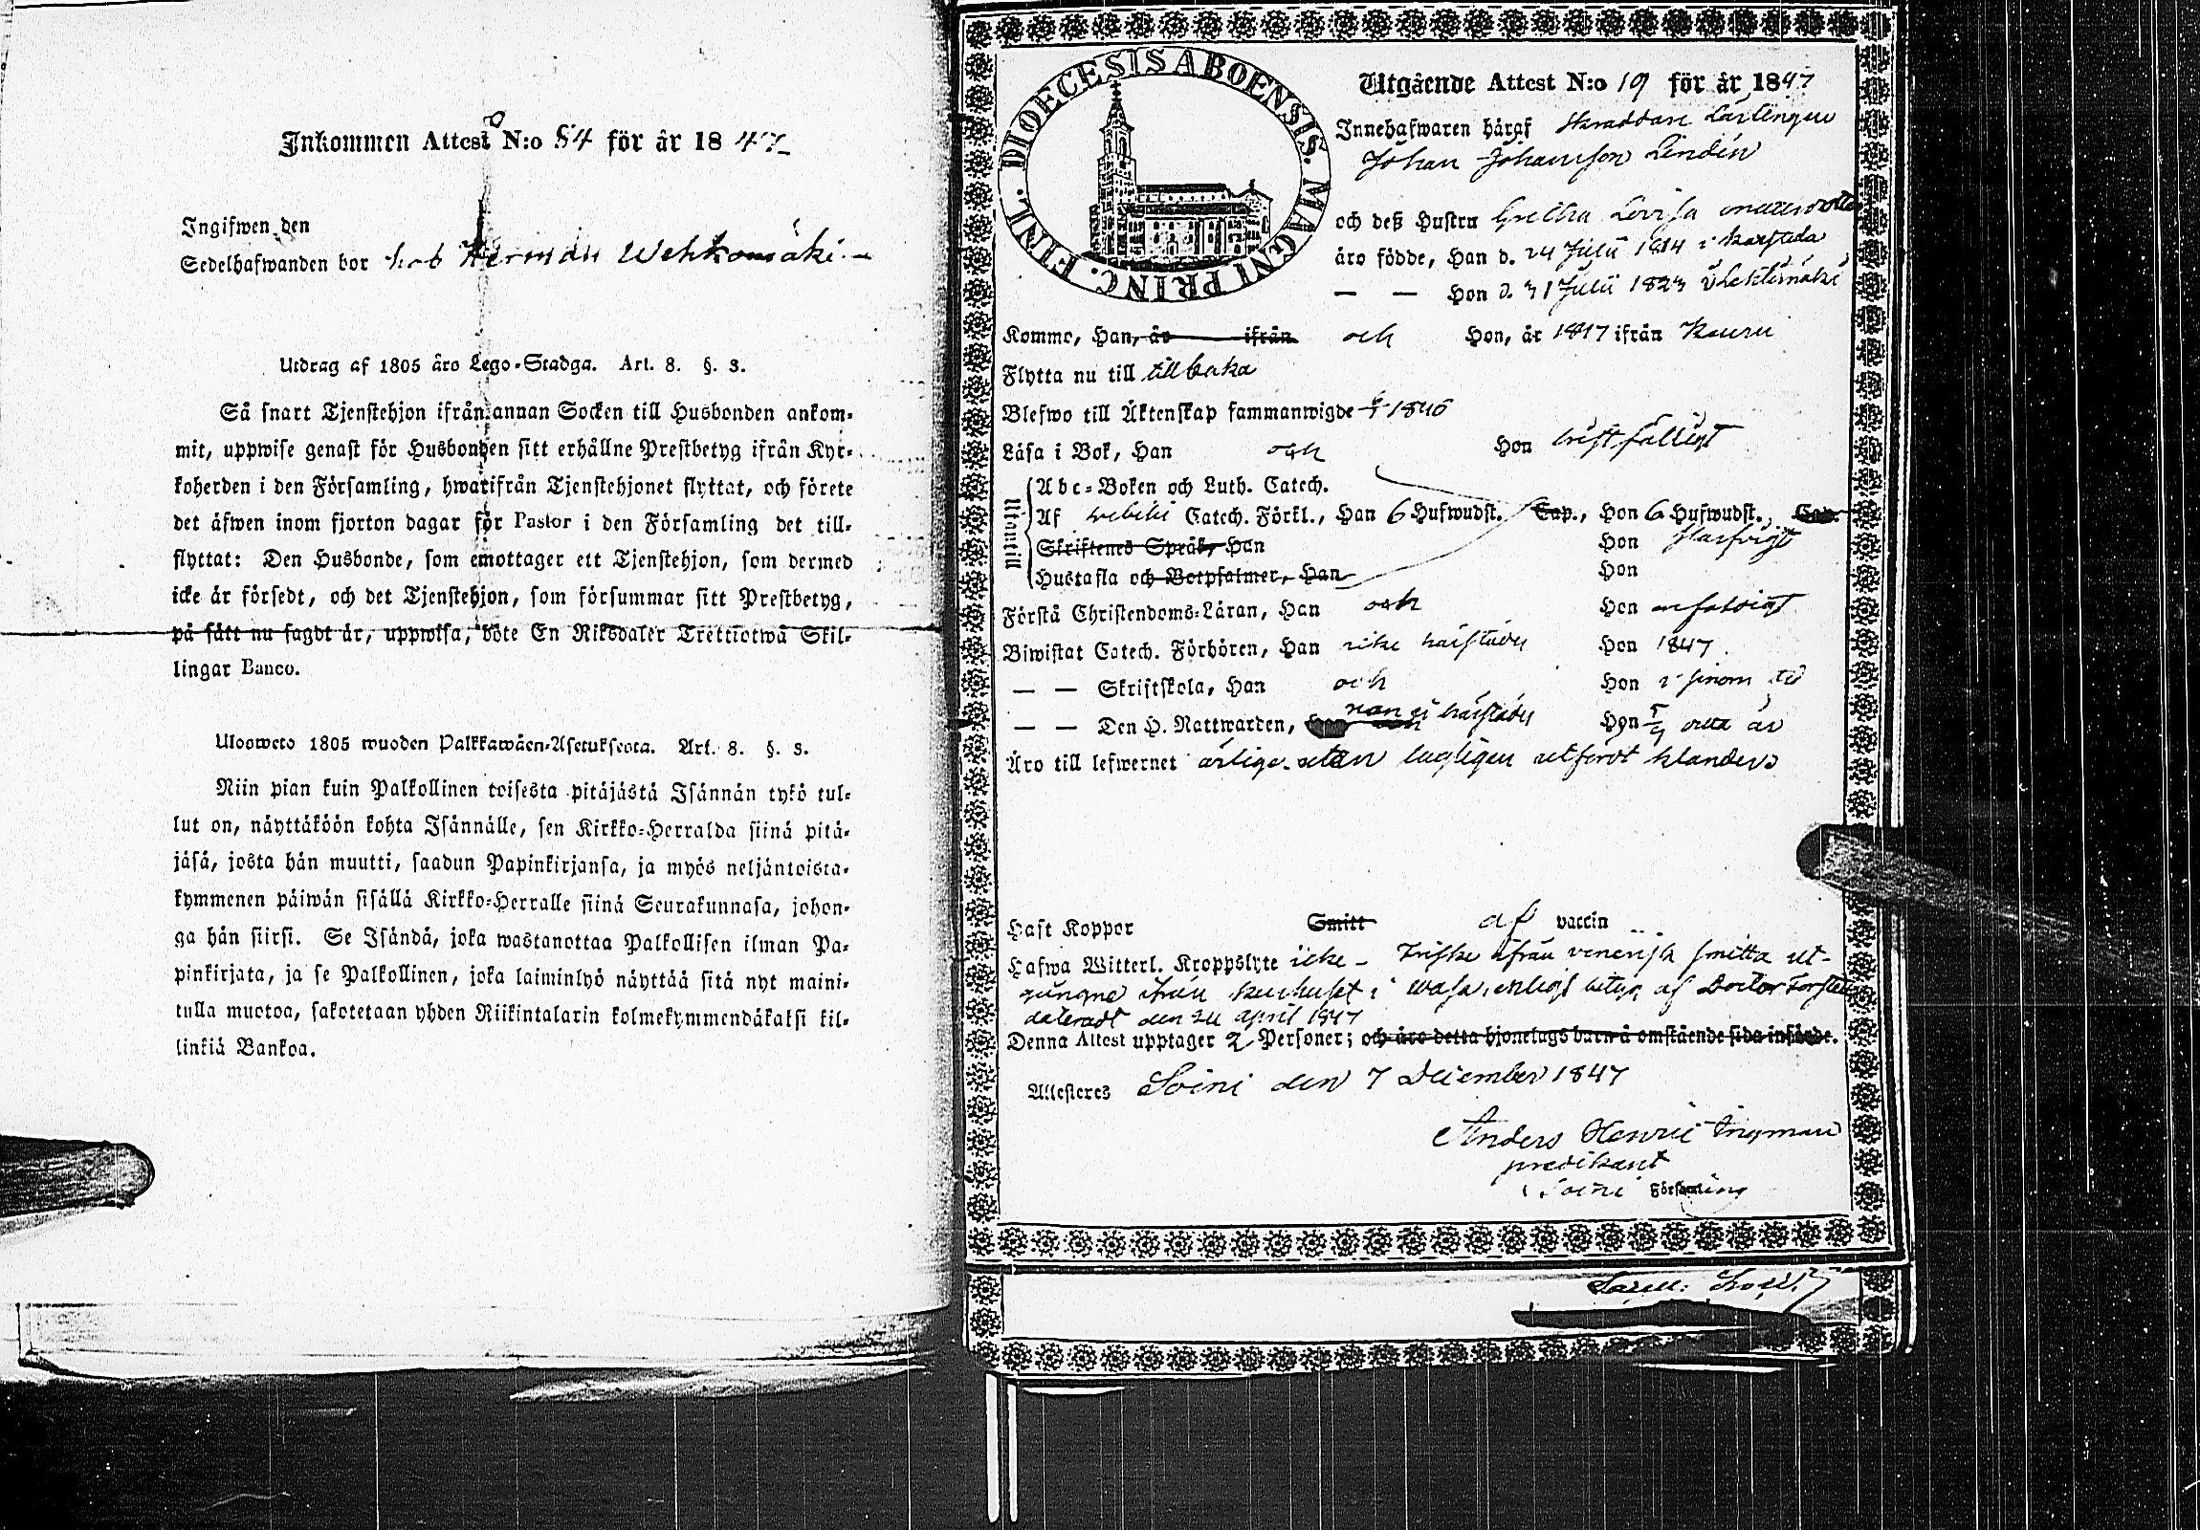 Inkommen Attest N:o 84 för år 1847
Ingifwen den
Sedelhafwanden bor hos Herman Wehkomäki
Utdrag af 1805 års Lego-Stadga. Art. 8. §. 3.
Så snart Tjenstehjon ifrån annan Socken till Husbonden ankom-
mit, uppwise genast för Husbonden sitt erhållne Prestbetyg ifrån Kyr-
koherden i den Församling, hwarifrån Tjenstehjonet flyttat, och förete
det äfwen inom fjorton dagar för Pastor i den Församling det till-
flyttat: Den Husbonde, som emottager ett Tjenstehjon, som dermed
icke är försedt, och det Tjenstehjon, som försummar sitt Prestbetyg,
på sätt nu sagdt är, uppwisa, böte En Riksdaler Trettiotwå Skil-
lingar Banco.
Ulosweto 1805 wuoden Palkkawäen-Asetuksesta. Art. 8. §. 3.
Niin pian kuin Palkollinen toisesta pitäjästä Isännän tykö tul-
lut on, näyttäköön kohta Isännälle, sen Kirkko-Herralda siinä pitä-
jäsä, josta hän muutti, saadun Papinkirjansa, ja myös neljäntoista-
kymmenen päiwän sisällä Kirkko-Herralle siinä Seurakunnasa, johon-
ga hän siirsi. Se Isändä, joka wastanottaa Palkollisen ilman Pa-
pinkirjata, ja se Palkollinen, joka laiminlyö näyttää sitä nyt maini-
tulla muotoa, sakotetaan yhden Riikintalarin kolmekymmendäkaksi kil-
linkiä Bankoa.
DIOECESIS ABOENSIS. MAGNI PRINC. FINL.
Utgående Attest N:o 19 för år 1847
Innehafwaren häraf skräddare Lärlingen
Johan Johansson Lindén
och deß Hustru Gretha Lovisa
äro födde, Han d. 24 Julii 1814 i Karstula
— — Hon d. 31 Julii 1823
Komme, Han, år ifrån och Hon, år 1847 ifrån
Flytta nu till tillbaka
Blefwo till Äktenskap sammanwigde 1846
Läsa i Bok, Han och Hon
Utantill
Abc-Boken och Luth. Catech.
Af Catech. Förkl., Han 6 Hufwudst. Cap., Hon 6 Hufwudst. Cap.
Skriftenes Språk, Han Hon
Hustafla och Botpsalmer, Han Hon
Förstå Christendoms-Läran, Han och Hon
Biwistat Catech. Förhören, Han icke härstädes Hon 1847.
— — Skriftskola, Han och Hon i sinom tid
— — Den H. Nattwarden, Han ej härstädes Hon detta år
Äro till lefwernet ärlige utan lagligen utfördt klander
Haft Koppor Smitt af vaccin
Hafwa Witterl. Kroppslyte icke - friske ifrån venerisk smitta ut-
gångne ifrån kurhuset i Wasa, enligt betyg af Doctor
dateradt den april 1847
Denna Attest upptager 2 Personer; och äro detta hjonelags barn å omstående sida införde.
Attesteres Soini den 7 December 1847
Anders Henric Ingman
predikant
i Soini Församling